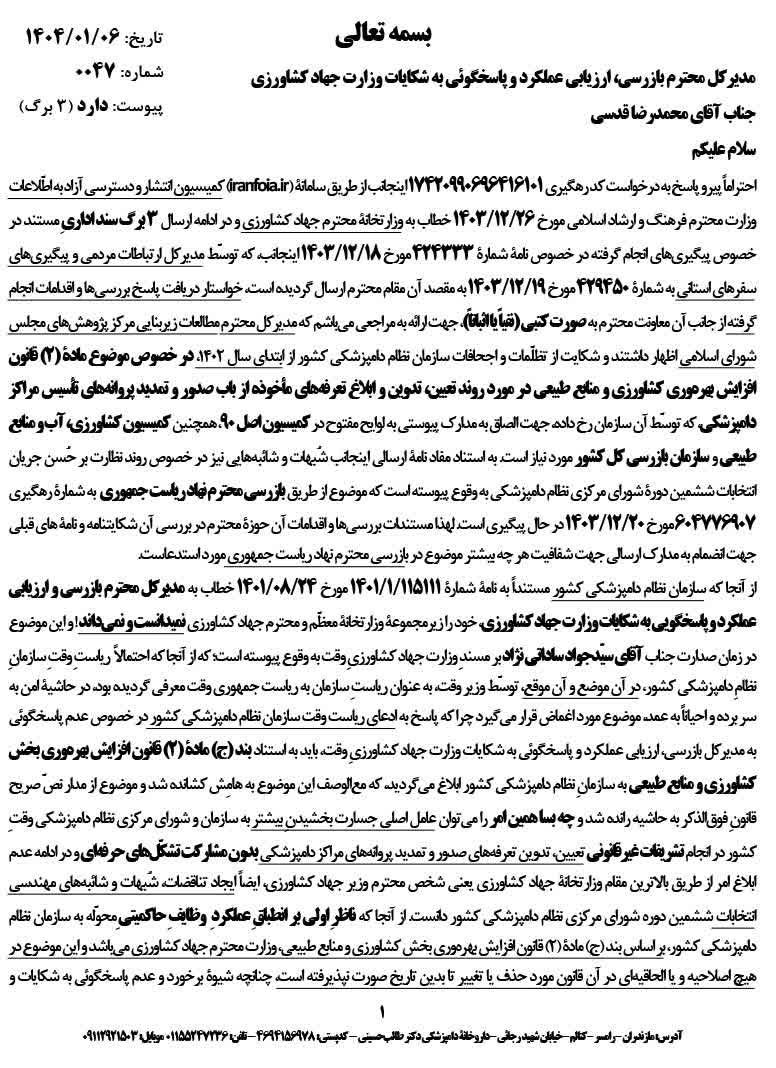 بسمه تعالی
تاریخ: ۱۴۰۴/۰۱/۰۶
شماره: ۰۰۴۷
پیوست: دارد (۳ برگ)
مدیر کل محترم بازرسی، ارزیابی عملکرد و پاسخگوئی به شکایات وزارت جهاد کشاورزی
جناب آقای محمدرضا قدسی
سلام علیکم
احتراماً پیرو پاسخ به درخواست کد رهگیری ۱۷۴۲۰۹۹۰۶۹۶۴۱۶۱۰۱ اینجانب از طریق سامانهٔ (iranfoia.ir) کمیسیون انتشار و دسترسی آزاد به اطّلاعات
وزارت محترم فرهنگ و ارشاد اسلامی مورخ ۱۴۰۳/۱۲/۲۶ خطاب به وزارتخانهٔ محترم جهاد کشاورزی و در ادامه ارسال ۳ برگ سند اداریِ مستند در
خصوص پیگیری‌های انجام گرفته در خصوص نامهٔ شمارهٔ ۴۲۴۳۳۳ مورخ ۱۴۰۳/۱۲/۱۸ اینجانب، که توسّط مدیر کل ارتباطات مردمی و پیگیری‌های
سفرهای استانی به شمارهٔ ۴۲۹۴۵۰ مورخ ۱۴۰۳/۱۲/۱۹ به مقصد آن مقام محترم ارسال گردیده است، خواستار دریافت پاسخ بررسی‌ها و اقدامات انجام
گرفته از جانب آن معاونت محترم به صورت کتبی (نفیاً یا اثباتاً)، جهت ارائه به مراجعی می‌باشم که مدیر کل محترم مطالعات زیربنایی مرکز پژوهش‌های مجلس
شورای اسلامی اظهار داشتند و شکایت از تظلّمات و اجحافات سازمان نظام دامپزشکی کشور از ابتدای سال ۱۴۰۲، در خصوص موضوع مادهٔ (۲) قانون
افزایش بهره‌وری کشاورزی و منابع طبیعی در مورد روند تعیین، تدوین و ابلاغ تعرفه‌های مأخوذه از باب صدور و تمدید پروانه‌های تأسیس مراکز
دامپزشکی، که توسّط آن سازمان رخ داده، جهت الصاق به مدارک پیوستی به لوایح مفتوح در کمیسیون اصل ۹۰، همچنین کمیسیون کشاورزی، آب و منابع
طبیعی و سازمان بازرسی کل کشور مورد نیاز است. به استناد مفاد نامهٔ ارسالی اینجانب شُبهات و شائبه‌هایی نیز در خصوص روند نظارت بر حُسن جریان
انتخابات ششمین دورهٔ شورای مرکزی نظام دامپزشکی به وقوع پیوسته است که موضوع از طریق بازرسی محترم نهاد ریاست جمهوری به شمارهٔ رهگیری
۶۰۴۷۷۶۹۰۷ مورخ ۱۴۰۳/۱۲/۲۰ در حال پیگیری است. لهذا مستندات بررسی‌ها و اقدامات آن حوزهٔ محترم در بررسی آن شکایتنامه و نامه های قبلی
جهت انضمام به مدارک ارسالی جهت شفافیت هر چه بیشتر موضوع در بازرسی محترم نهاد ریاست جمهوری مورد استدعاست.
از آنجا که سازمان نظام دامپزشکی کشور مستنداً به نامهٔ شمارهٔ ۱۴۰۱/۱/۱۱۵۱۱۱ مورخ ۱۴۰۱/۰۸/۲۴ خطاب به مدیر کل محترم بازرسی و ارزیابی
عملکرد و پاسخگویی به شکایات وزارت جهاد کشاورزی، خود را زیر مجموعهٔ وزارتخانهٔ معظّم و محترم جهاد کشاورزی نمیدانست و نمی‌داند! و این موضوع
در زمان صدارت جناب آقای سیّدجواد ساداتی نژاد بر مسندِ وزارت جهاد کشاورزیِ وقت به وقوع پیوسته است؛ که از آنجا که احتمالاً ریاستِ وقتِ سازمانِ
نظامِ دامپزشکی کشور، در آن موضع و آن موقع، توسّط وزیر وقت، به عنوان ریاستِ سازمان به ریاست جمهوری وقت معرفی گردیده بود، در حاشیهٔ امن به
سر برده و احیاناً به عمد، موضوع مورد اغماض قرار می‌گیرد چرا که پاسخ به ادعای ریاست وقت سازمان نظام دامپزشکی کشور در خصوص عدم پاسخگوئی
به مدیر کل بازرسی، ارزیابی عملکرد و پاسخگوئی به شکایات وزارت جهاد کشاورزیِ وقت، باید به استناد بند (ج) مادهٔ (۲) قانون افزایش بهره‌وری بخش
کشاورزی و منابع طبیعی به سازمانِ نظام دامپزشکی کشور ابلاغ می‌گردید، که مع‌الوصف این موضوع به هامِش کشانده شد و موضوع از مدار نصّ صریح
قانونِ فوق‌الذکر به حاشیه رانده شد و چه بسا همین امر را می‌توان عامل اصلی جسارت بخشیدنِ بیشتر به سازمان و شورای مرکزی نظام دامپزشکی وقتِ
کشور در انجام تشریفات غیر قانونی تعیین، تدوین تعرفه‌های صدور و تمدید پروانه‌های مراکز دامپزشکی بدون مشارکت تشکّل‌های حرفه‌ای و در ادامه عدم
ابلاغ امر از طریق بالاترین مقام وزارتخانهٔ جهاد کشاورزی یعنی شخص محترم وزیر جهاد کشاورزی، ایضاً ایجاد تناقضات، شُبهات و شائبه‌های مهندسی
انتخابات ششمین دوره شورای مرکزی نظام دامپزشکی کشور دانست. از آنجا که ناظر اولی بر انطباقِ عملکرد وظایفِ حاکمیتیِ محوّله به سازمان نظام
دامپزشکی کشور، بر اساس بند (ج) مادهٔ (۲) قانون افزایش بهره‌وری بخش کشاورزی و منابع طبیعی، وزارت محترم جهاد کشاورزی می‌باشد و این موضوع در
هیچ اصلاحیه و یا الحاقیه‌ای در آن قانون مورد حذف یا تغییر تا بدین تاریخ صورت نپذیرفته است، چنانچه شیوهٔ برخورد و عدم پاسخگوئی به شکایات و
۱
آدرس: مازندران – رامسر – کتالم – خیابان شهید رجائی – داروخانهٔ دامپزشکی دکتر طالب حسینی – کدپستی: ۴۶۹۴۱۵۶۹۷۸ – تلفن: ۰۱۱۵۵۲۴۷۲۳۶ موبایل: ۰۹۱۱۲۹۲۱۵۰۳